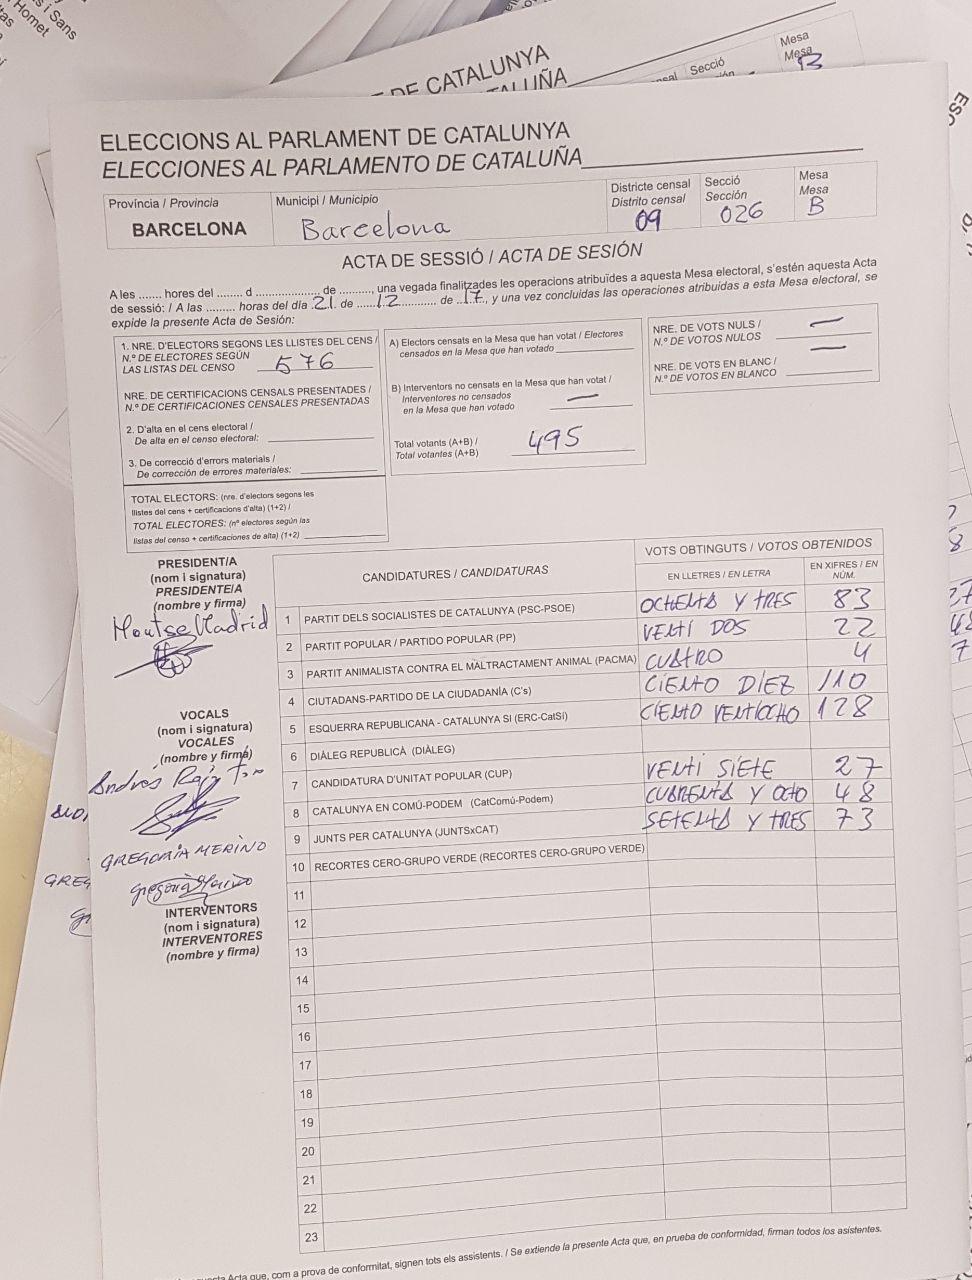 s i Sans
Homet
DE CATALUNYA
TALUÑA
Secció
Mesa
Mesa
B
ELECCIONS AL PARLAMENT DE CATALUNYA
ELECCIONES AL PARLAMENTO DE CATALUÑA
Província / Provincia
BARCELONA
Municipi / Municipio
Barcelona
Districte censal
Distrito censal
09
Secció
Sección
026
Mesa
Mesa
B
ACTA DE SESSIÓ / ACTA DE SESIÓN
A les ....... hores del ........ d .................... de .........., una vegada finalitzades les operacions atribuïdes a aquesta Mesa electoral, s'estén aquesta Acta
de sessió: / A las ......... horas del día 21 de 12 de 17, y una vez concluidas las operaciones atribuidas a esta Mesa electoral, se
expide la presente Acta de Sesión:
1. NRE. D'ELECTORS SEGONS LES LLISTES DEL CENS /
N.º DE ELECTORES SEGÚN
LAS LISTAS DEL CENSO 576
NRE. DE CERTIFICACIONS CENSALS PRESENTADES /
N.º DE CERTIFICACIONES CENSALES PRESENTADAS
2. D'alta en el cens electoral /
De alta en el censo electoral:
3. De correcció d'errors materials /
De corrección de errores materiales:
TOTAL ELECTORS: (nre. d'electors segons les
llistes del cens + certificacions d'alta) (1+2) /
TOTAL ELECTORES: (nº electores según las
listas del censo + certificaciones de alta) (1+2)
A) Electors censats en la Mesa que han votat / Electores
censados en la Mesa que han votado
B) Interventors no censats en la Mesa que han votat /
Interventores no censados
en la Mesa que han votado —
Total votants (A+B) /
Total votantes (A+B) 495
NRE. DE VOTS NULS /
N.º DE VOTOS NULOS —
NRE. DE VOTS EN BLANC /
N.º DE VOTOS EN BLANCO —
PRESIDENT/A
(nom i signatura)
PRESIDENTE/A
(nombre y firma)
Montse Madrid
VOCALS
(nom i signatura)
VOCALES
(nombre y firma)
Andres
GREGORIA MERINO
Gregoria Merino
INTERVENTORS
(nom i signatura)
INTERVENTORES
(nombre y firma)
CANDIDATURES / CANDIDATURAS
VOTS OBTINGUTS / VOTOS OBTENIDOS
EN LLETRES / EN LETRA
EN XIFRES / EN
NÚM.
1 PARTIT DELS SOCIALISTES DE CATALUNYA (PSC-PSOE) OCHENTA Y TRES 83
2 PARTIT POPULAR / PARTIDO POPULAR (PP) VENTI DOS 22
3 PARTIT ANIMALISTA CONTRA EL MALTRACTAMENT ANIMAL (PACMA) CUATRO 4
4 CIUTADANS-PARTIDO DE LA CIUDADANÍA (C's) CIENTO DIEZ 110
5 ESQUERRA REPUBLICANA - CATALUNYA SÍ (ERC-CatSí) CIENTO VENTIOCHO 128
6 DIÀLEG REPUBLICÀ (DIÀLEG)
7 CANDIDATURA D'UNITAT POPULAR (CUP) VENTI SIETE 27
8 CATALUNYA EN COMÚ-PODEM (CatComú-Podem) CUARENTA Y OCTO 48
9 JUNTS PER CATALUNYA (JUNTSxCAT) SETENTA Y TRES 73
10 RECORTES CERO-GRUPO VERDE (RECORTES CERO-GRUPO VERDE)
11
12
13
14
15
16
17
18
19
20
21
22
23
Acta que, com a prova de conformitat, signen tots els assistents. / Se extiende la presente Acta que, en prueba de conformidad, firman todos los asistentes.